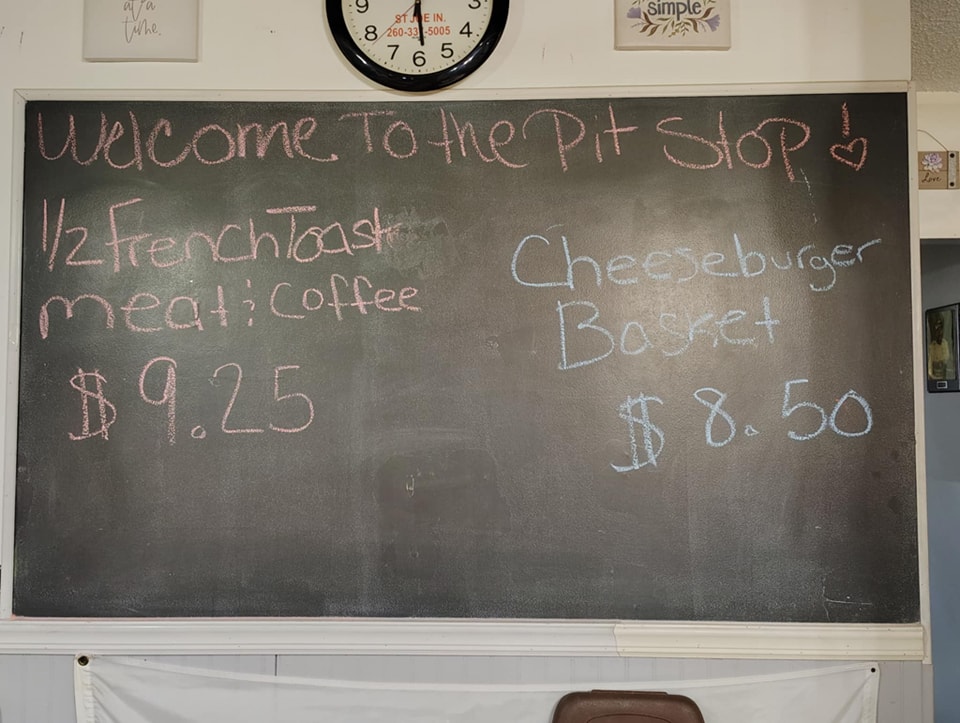 at a
time.
9 3
8 4
7 6 5
ST JOE IN.
simple
Welcome To the Pit Stop!
1/2 French Toast
meat & coffee
$9.25
Cheeseburger
Basket
$8.50
Love